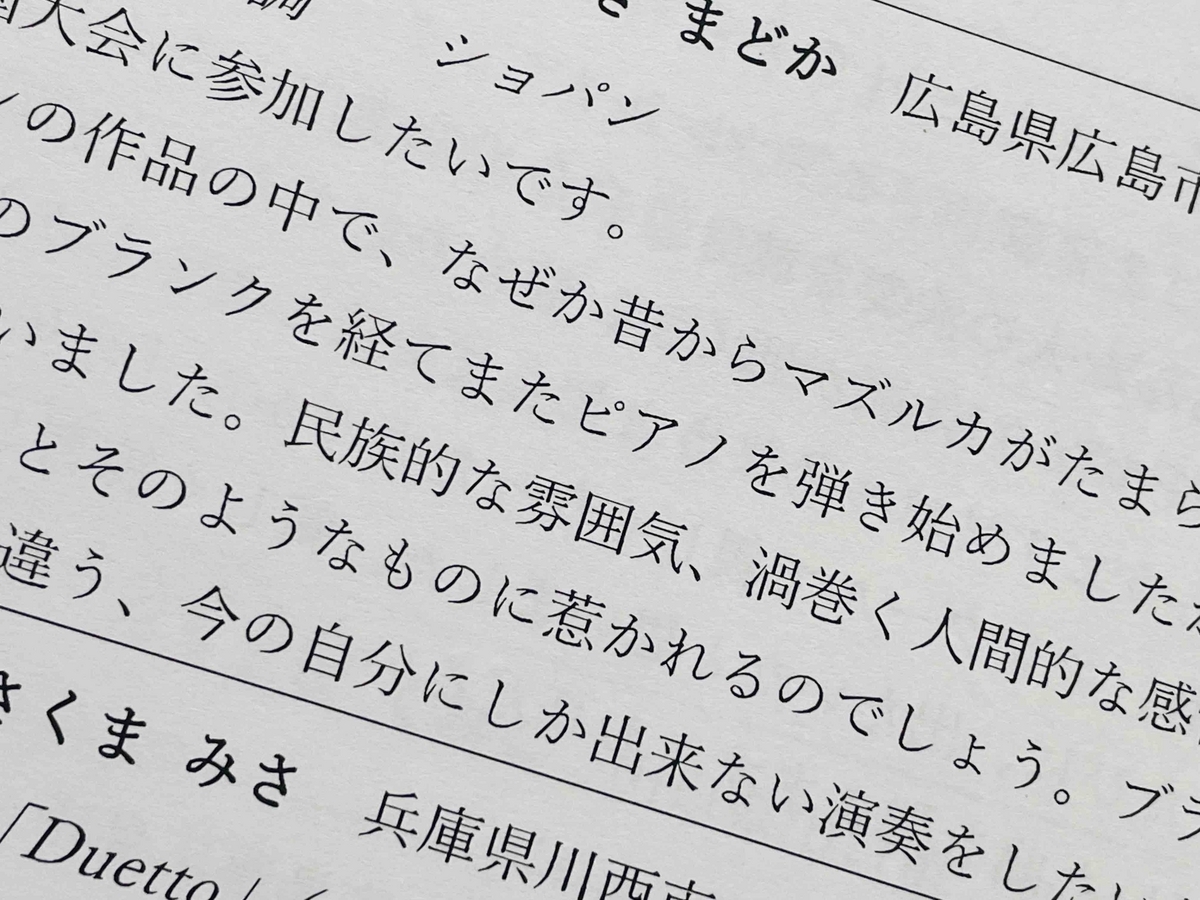 まどか 広島県広島市
調 ショパン
大会に参加したいです。
の作品の中で、なぜか昔からマズルカがたまら
のブランクを経てまたピアノを弾き始めました
いました。民族的な雰囲気、渦巻く人間的な感
とそのようなものに惹かれるのでしょう。ブラ
違う、今の自分にしか出来ない演奏をしたい
さくま みさ 兵庫県川西市
「Duetto」